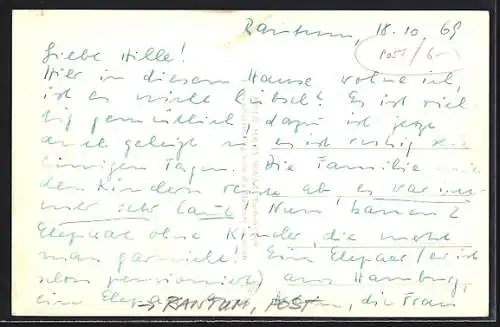 Rantum, 18.10.69
Liebe Hille!
Hier in diesem Hause wohne ich,
ist es nicht hübsch? Es ist rich-
tig gemütlich, dazu ist jetzt
es ist ruhig
einigen Tagen. Die Familie mit
den Kindern reiste ab, es war im-
mer sehr laut! Nun kamen 2
Ehepaar ohne Kinder, die merkt
man garnicht! Ein Ehepaar (er ist
schon pensioniert) aus Hamburg,
ein Ehepaar die Frau
→ RANTUM, POST